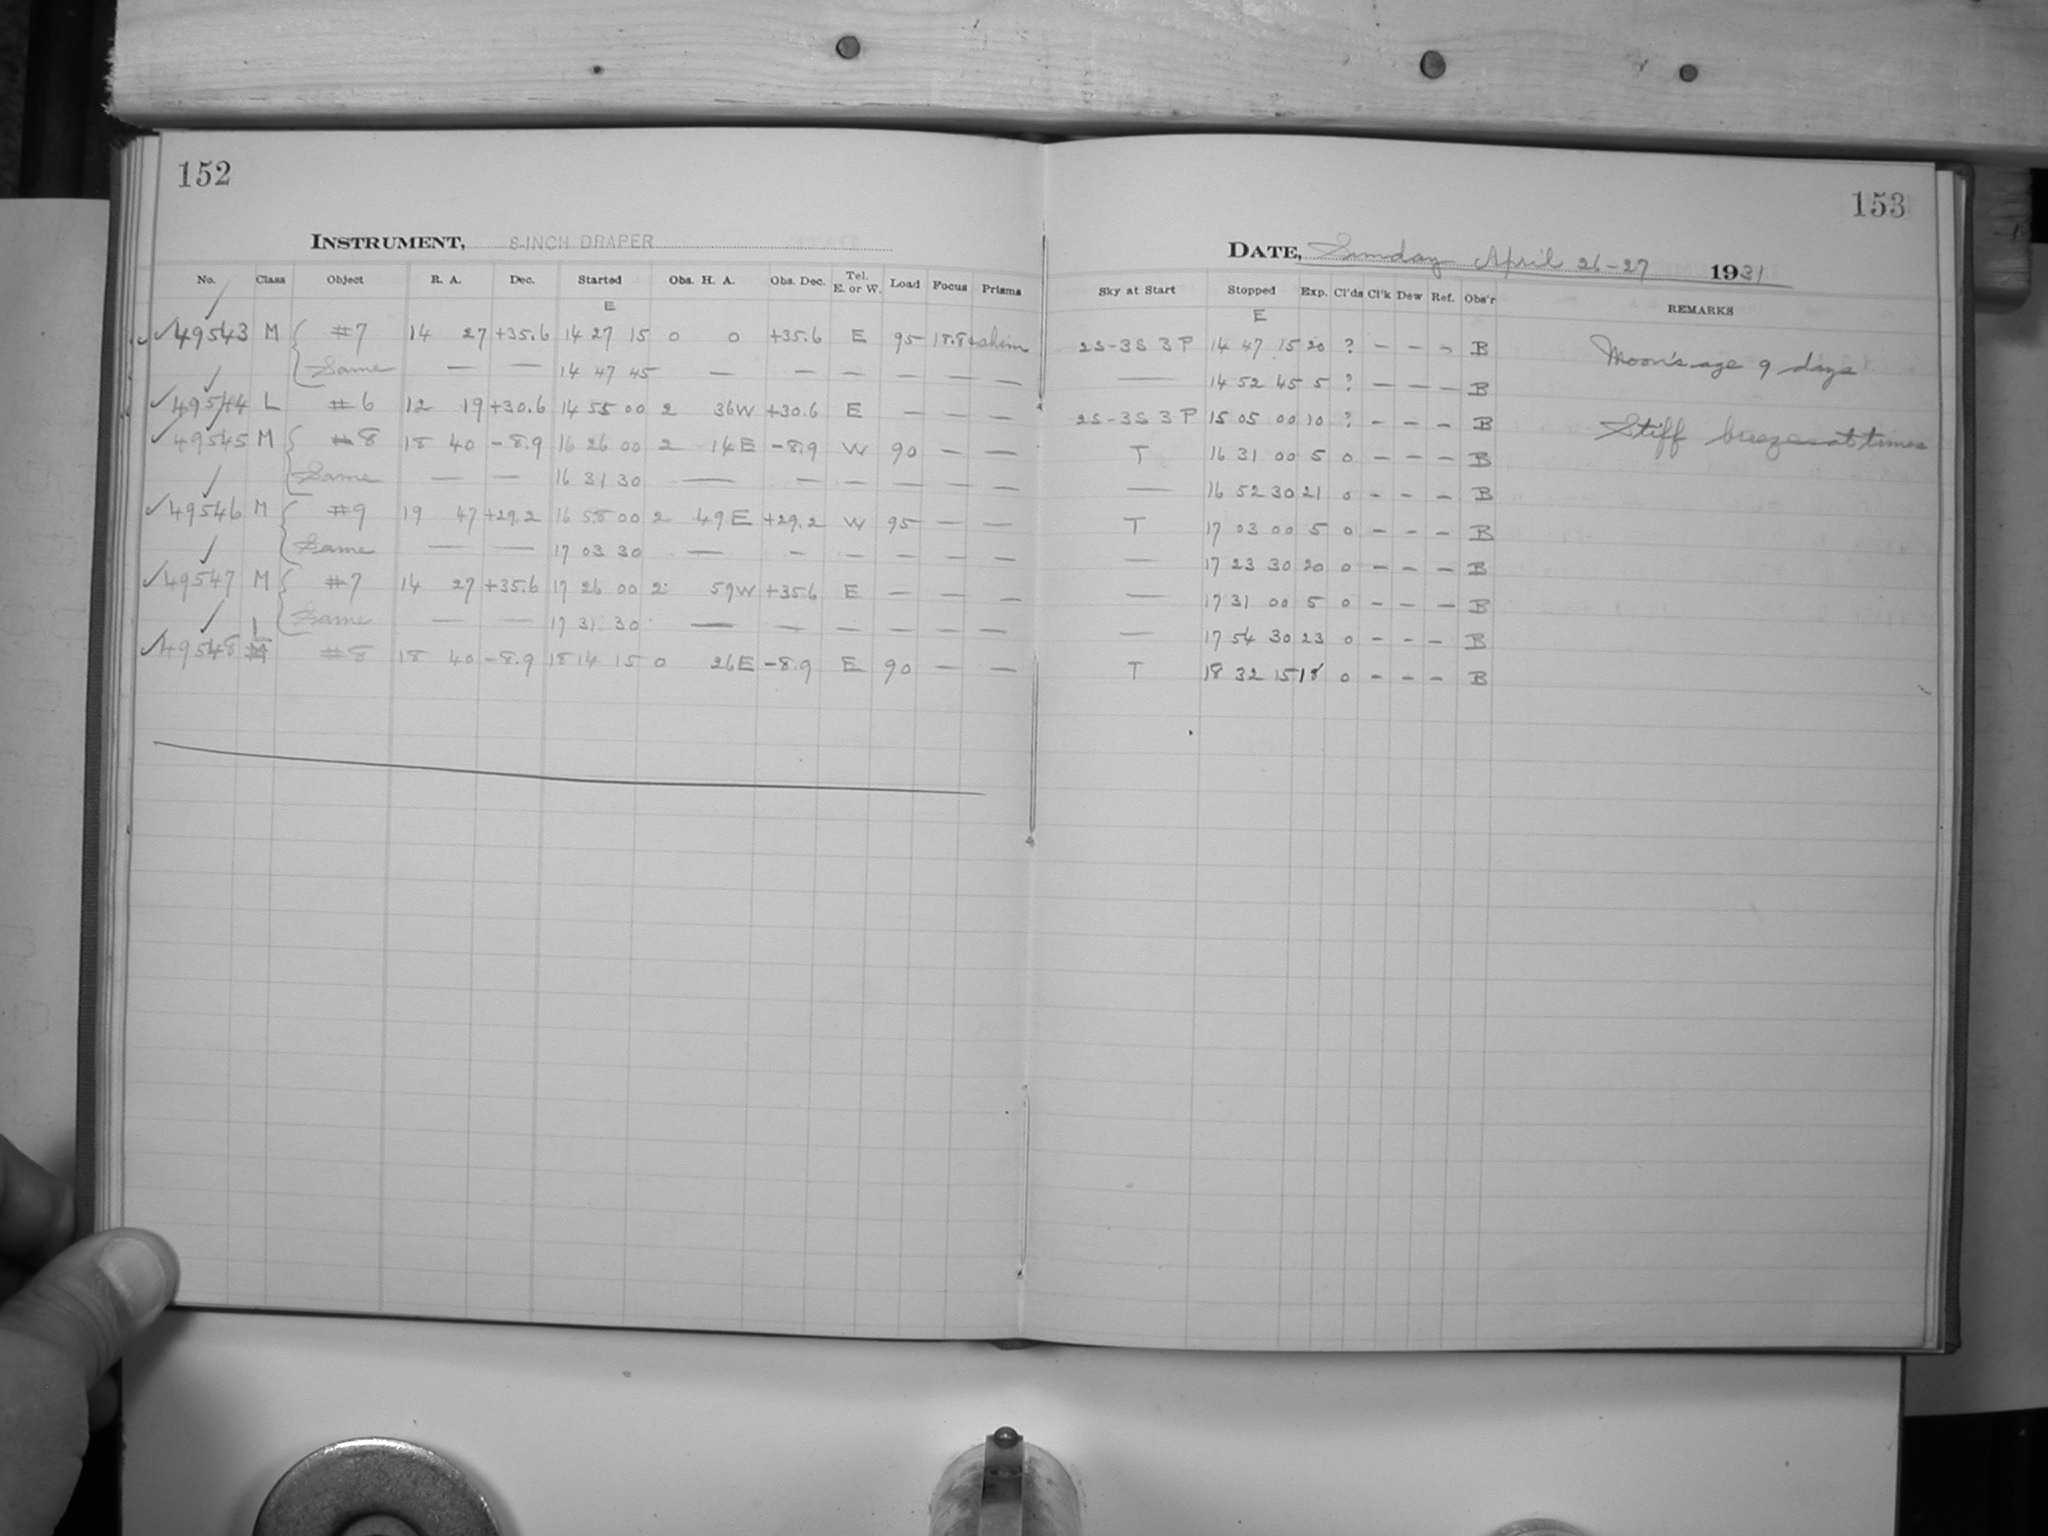 152
INSTRUMENT, 8-INCH DRAPER
No. Class Object R. A. Dec. Started Obs. H. A. Obs. Dec. Tel. E. or W. Load Focus Prisms
E
49543 M #7 14 27 +35.6 14 27 15 0 0 +35.6 E 95 18.8+shim
Same — — 14 47 45 — — — — — —
49544 L #6 12 19 +30.6 14 55 00 2 36W +30.6 E — — —
49545 M #8 18 40 -8.9 16 26 00 2 14E -8.9 W 90 — —
Same — — 16 31 30 — — — — — —
49546 M #9 19 47 +29.2 16 58 00 2 49E +29.2 W 95 — —
Same — — 17 03 30 — — — — — —
49547 M #7 14 27 +35.6 17 26 00 2 59W +35.6 E — — —
Same — — 17 31 30 — — — — — —
49548 L #8 18 40 -8.9 18 14 15 0 26E -8.9 E 90 — —
153
DATE, Sunday April 26-27 1931
Sky at Start Stopped Exp. Cl'ds Cl'k Dew Ref. Obs'r REMARKS
E
2S-3S 3P 14 47 15 20 ? — — — B Moon's age 9 days
— 14 52 45 5 ? — — — B
2S-3S 3P 15 05 00 10 ? — — — B Stiff breezes at times
T 16 31 00 5 0 — — — B
— 16 52 30 21 0 — — — B
T 17 03 00 5 0 — — — B
— 17 23 30 20 0 — — — B
— 17 31 00 5 0 — — — B
— 17 54 30 23 0 — — — B
T 18 32 15 18 0 — — — B